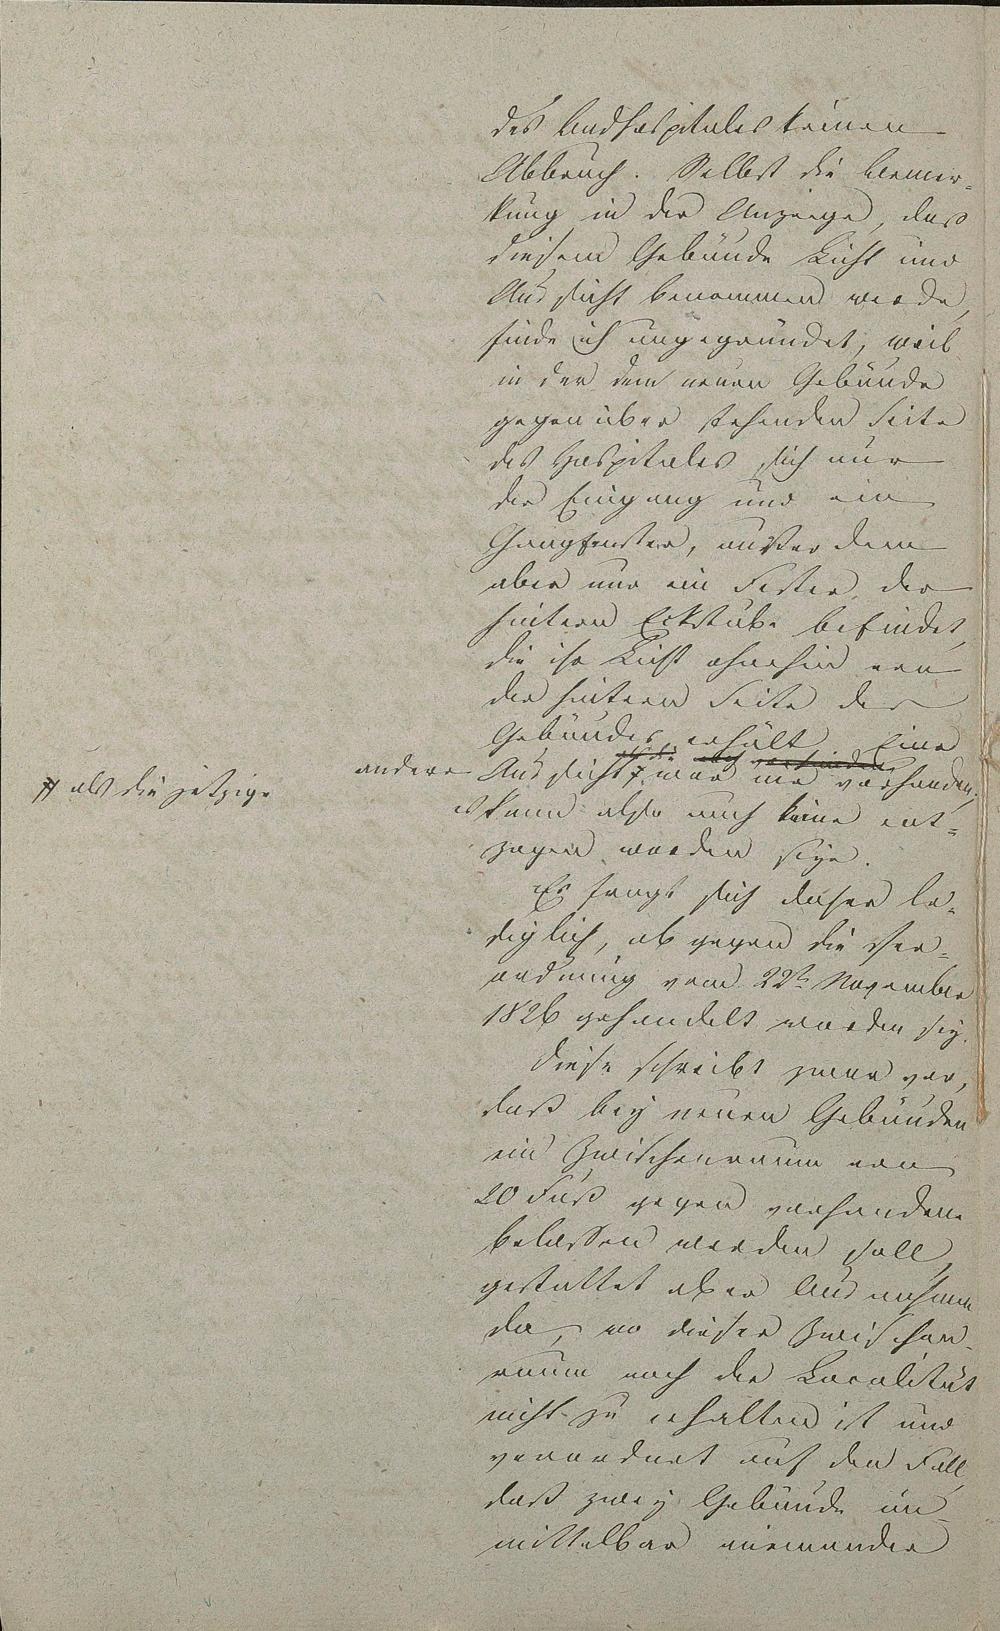 des Badhospitales keinen
Abbruch. Selbst die Bemer-
kung in der Anzeige, daß
diesem Gebäude Licht und
Aussicht benommen werde,
finde ich ungegründet, weil
in der dem neuen Gebäude
gegenüber stehenden Seite
des Hospitales sich nur
der Eingang und ein
Gangfenster, außer dem
aber nur ein Fester der
hintern Eckstube befindet,
die ihr Licht ohnehin von
der hintern Seite des
Gebäudes erhält. Eine
andere Aussicht # war nie vorhanden,
# als die jetzige
es kann also auch keine ent-
zogen worden seyn.
Es fragt sich daher le-
diglich, ob gegen die Ver-
ordnung vom 22t November
1826 gehandelt worden sey.
Diese schreibt zwar vor,
daß bey neuen Gebäuden
ein Zwischenraum von
20 Fuß gegen vorhandene
belassen werden soll,
gestattet aber Ausnahmen
da, wo dieser Zwischen-
raum nach der Localität
nicht zu erhalten ist und
verordnet auf den Fall,
daß zwey Gebäude un-
mittelbar aneinander